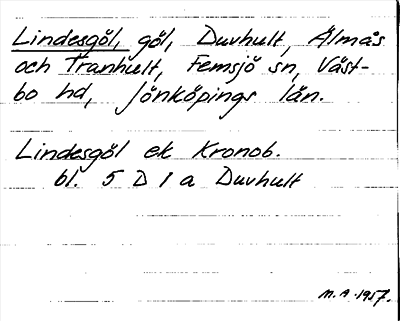 Lindesgöl, göl, Duvhult, Älmås
och Tranhult, Femsjö sn, Väst-
bo hd, Jönköpings län.
Lindesgöl ek Kronob.
bl. 5 D 1 a Duvhult
M.A. 1957.